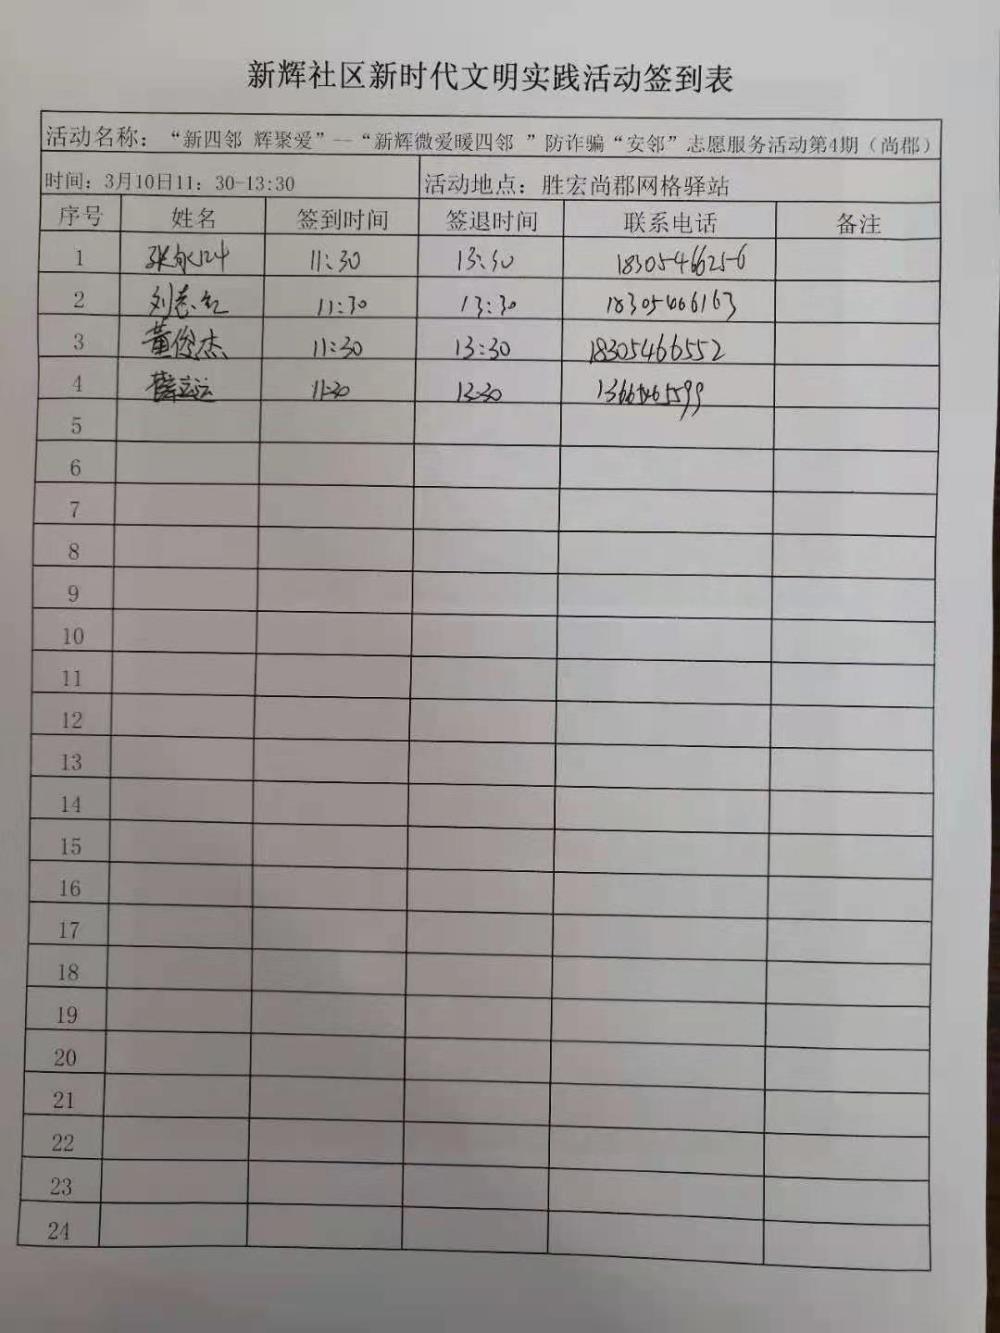 新辉社区新时代文明实践活动签到表
活动名称：“新四邻 辉聚爱”--“新辉微爱暖四邻 ”防诈骗“安邻”志愿服务活动第4期（尚郡）
时间：3月10日11：30-13:30 活动地点：胜宏尚郡网格驿站
序号 姓名 签到时间 签退时间 联系电话 备注
1 11:30 13:30 18305466256
2 11:30 13:30 18305466163
3 董俊杰 11:30 13:30 18305466552
4 11:30 13:30
5
6
7
8
9
10
11
12
13
14
15
16
17
18
19
20
21
22
23
24